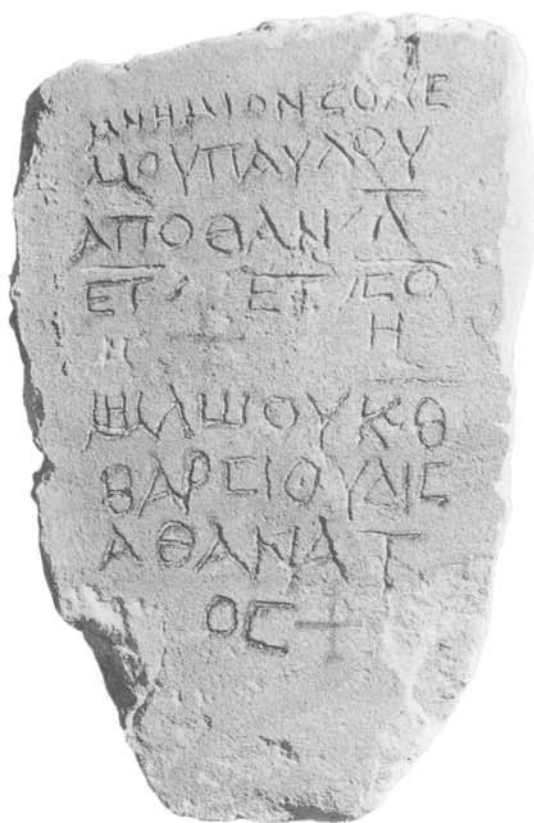 ΜΝΗΜΙΟΝϹΟΛΕ
ΜΟΥΠΑΥΛΟΥ
ΑΠΟΘΑΝ Λ
ΕΤ ΕΤ ϹΟ
Η
ΜΗΛΩΟΥΚΘ
ΘΑΡϹΙΟΥΔΙϹ
ΑΘΑΝΑΤ
ΟϹ+